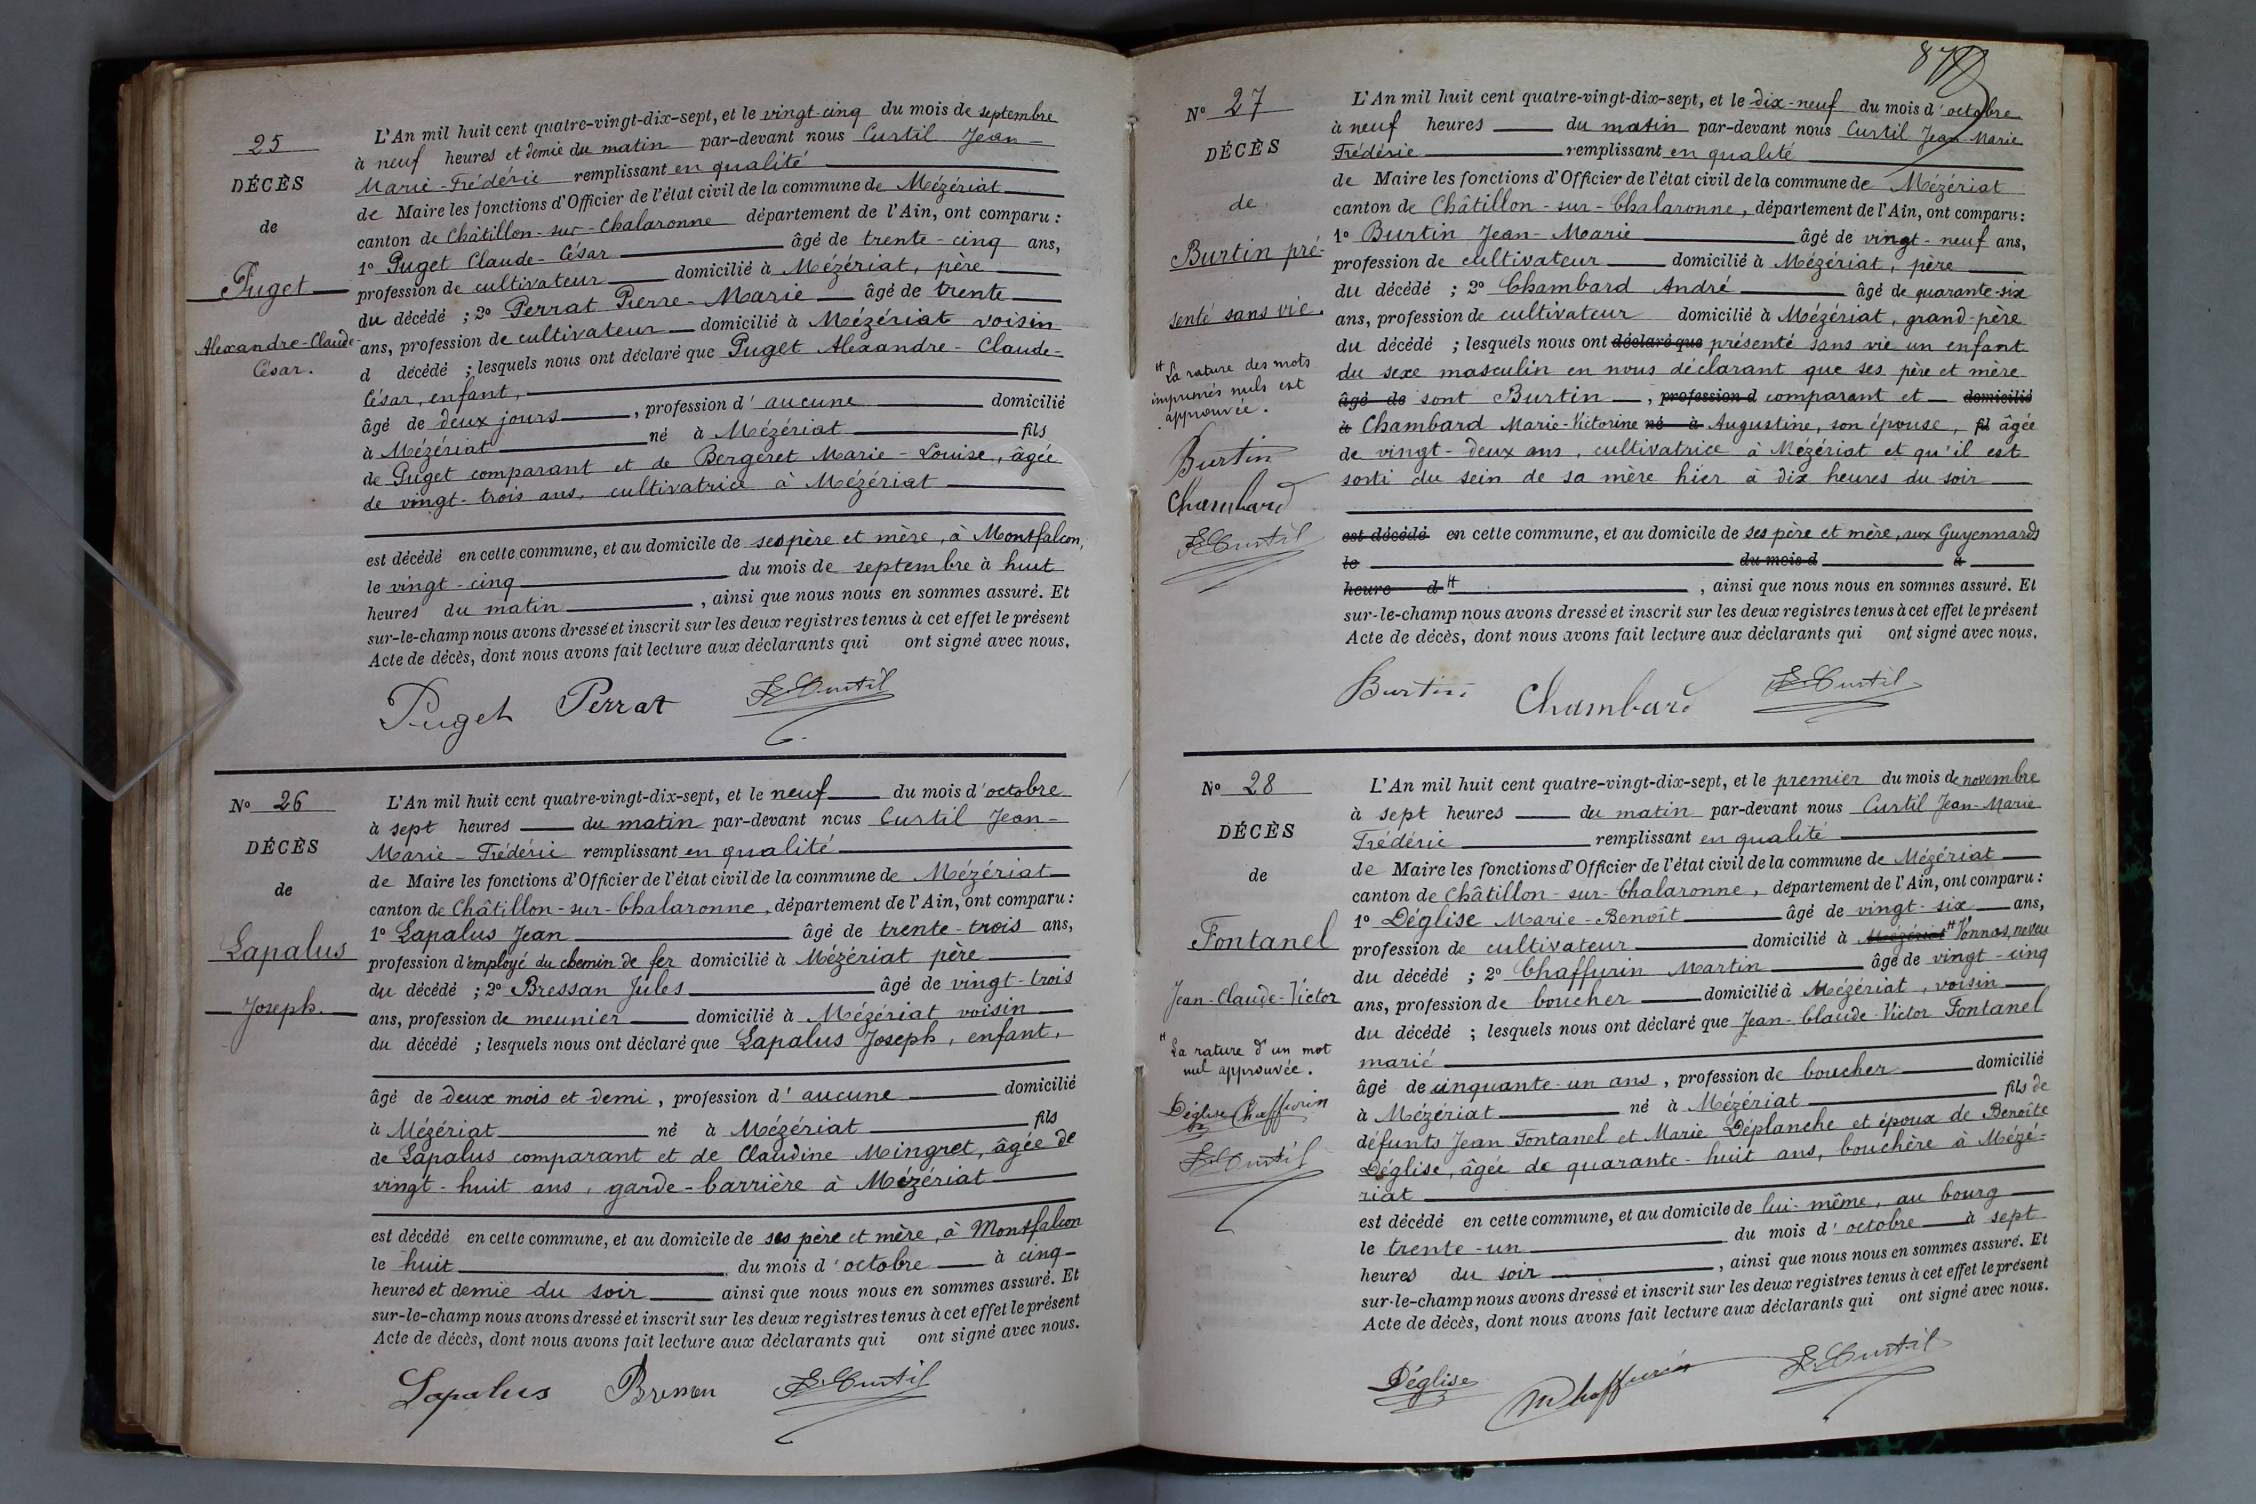 25
DÉCÈS
de
Puget
Alexandre-Claude-
César.
L'An mil huit cent quatre-vingt-dix-sept, et le vingt-cinq du mois de septembre
à neuf heures et demie du matin par-devant nous Curtil Jean-
Marie-Frédéric remplissant en qualité
de Maire les fonctions d'Officier de l'état civil de la commune de Mézériat
canton de Châtillon-sur-Chalaronne département de l'Ain, ont comparu :
1º Puget Claude-César âgé de trente-cinq ans,
profession de cultivateur domicilié à Mézériat, père
du décédé ; 2º Perrat Pierre-Marie âgé de trente
ans, profession de cultivateur domicilié à Mézériat voisin
d décédé ; lesquels nous ont déclaré que Puget Alexandre-Claude-
César, enfant,
âgé de deux jours, profession d'aucune domicilié
à Mézériat né à Mézériat fils
de Puget comparant et de Bergeret Marie-Louise, âgée
de vingt-trois ans, cultivatrice à Mézériat
est décédé en cette commune, et au domicile de ses père et mère, à Montfalcon,
le vingt-cinq du mois de septembre à huit
heures du matin, ainsi que nous nous en sommes assuré. Et
sur-le-champ nous avons dressé et inscrit sur les deux registres tenus à cet effet le présent
Acte de décès, dont nous avons fait lecture aux déclarants qui ont signé avec nous.
Puget Perrat F. Curtil
Nº 26
DÉCÈS
de
Lapalus
Joseph.
L'An mil huit cent quatre-vingt-dix-sept, et le neuf du mois d'octobre
à sept heures du matin par-devant nous Curtil Jean-
Marie-Frédéric remplissant en qualité
de Maire les fonctions d'Officier de l'état civil de la commune de Mézériat
canton de Châtillon-sur-Chalaronne, département de l'Ain, ont comparu :
1º Lapalus Jean âgé de trente-trois ans,
profession d'employé du chemin de fer domicilié à Mézériat père
du décédé ; 2º Bressan Jules âgé de vingt-trois
ans, profession de meunier domicilié à Mézériat voisin
du décédé ; lesquels nous ont déclaré que Lapalus Joseph, enfant,
âgé de deux mois et demi, profession d'aucune domicilié
à Mézériat né à Mézériat fils
de Lapalus comparant et de Claudine Mingret, âgée de
vingt-huit ans, garde-barrière à Mézériat
est décédé en cette commune, et au domicile de ses père et mère, à Montfalcon
le huit du mois d'octobre à cinq
heures et demie du soir ainsi que nous nous en sommes assuré. Et
sur-le-champ nous avons dressé et inscrit sur les deux registres tenus à cet effet le présent
Acte de décès, dont nous avons fait lecture aux déclarants qui ont signé avec nous.
Lapalus Bressan F. Curtil
87
Nº 27
DÉCÈS
de
Burtin pré-
senté sans vie.
# La rature des mots
imprimés nuls est
approuvée.
Burtin
Chambard
F. Curtil
L'An mil huit cent quatre-vingt-dix-sept, et le dix-neuf du mois d'octobre
à neuf heures du matin par-devant nous Curtil Jean-Marie
Frédéric remplissant en qualité
de Maire les fonctions d'Officier de l'état civil de la commune de Mézériat
canton de Châtillon-sur-Chalaronne, département de l'Ain, ont comparu :
1º Burtin Jean-Marie âgé de vingt-neuf ans,
profession de cultivateur domicilié à Mézériat, père
du décédé ; 2º Chambard André âgé de quarante-six
ans, profession de cultivateur domicilié à Mézériat, grand-père
du décédé ; lesquels nous ont déclaré que présenté sans vie un enfant
du sexe masculin en nous déclarant que ses père et mère
âgé de sont Burtin, profession d comparant et domicilié
à Chambard Marie-Victorine né à Augustine, son épouse, fil âgée
de vingt-deux ans, cultivatrice à Mézériat et qu'il est
sorti du sein de sa mère hier à dix heures du soir
est décédé en cette commune, et au domicile de ses père et mère, aux Guyennards
le du mois d à
heure d #, ainsi que nous nous en sommes assuré. Et
sur-le-champ nous avons dressé et inscrit sur les deux registres tenus à cet effet le présent
Acte de décès, dont nous avons fait lecture aux déclarants qui ont signé avec nous.
Burtin Chambard F. Curtil
Nº 28
DÉCÈS
de
Fontanel
Jean-Claude-Victor
# La rature d'un mot
nul approuvée.
Déglise Chaffurin
F. Curtil
L'An mil huit cent quatre-vingt-dix-sept, et le premier du mois de novembre
à sept heures du matin par-devant nous Curtil Jean-Marie
Frédéric remplissant en qualité
de Maire les fonctions d'Officier de l'état civil de la commune de Mézériat
canton de Châtillon-sur-Chalaronne, département de l'Ain, ont comparu :
1º Déglise Marie-Benoît âgé de vingt-six ans,
profession de cultivateur domicilié à Mézériat # Vonnas, neveu
du décédé ; 2º Chaffurin Martin âgé de vingt-cinq
ans, profession de boucher domicilié à Mézériat, voisin
du décédé ; lesquels nous ont déclaré que Jean-Claude-Victor Fontanel
marié
âgé de cinquante-un ans, profession de boucher domicilié
à Mézériat né à Mézériat fils de
défunts Jean Fontanel et Marie Déplanche et époux de Benoîte
Déglise, âgée de quarante-huit ans, bouchère à Mézé-
riat
est décédé en cette commune, et au domicile de lui-même, au bourg
le trente-un du mois d'octobre à sept
heures du soir, ainsi que nous nous en sommes assuré. Et
sur-le-champ nous avons dressé et inscrit sur les deux registres tenus à cet effet le présent
Acte de décès, dont nous avons fait lecture aux déclarants qui ont signé avec nous.
Déglise M Chaffurin F. Curtil